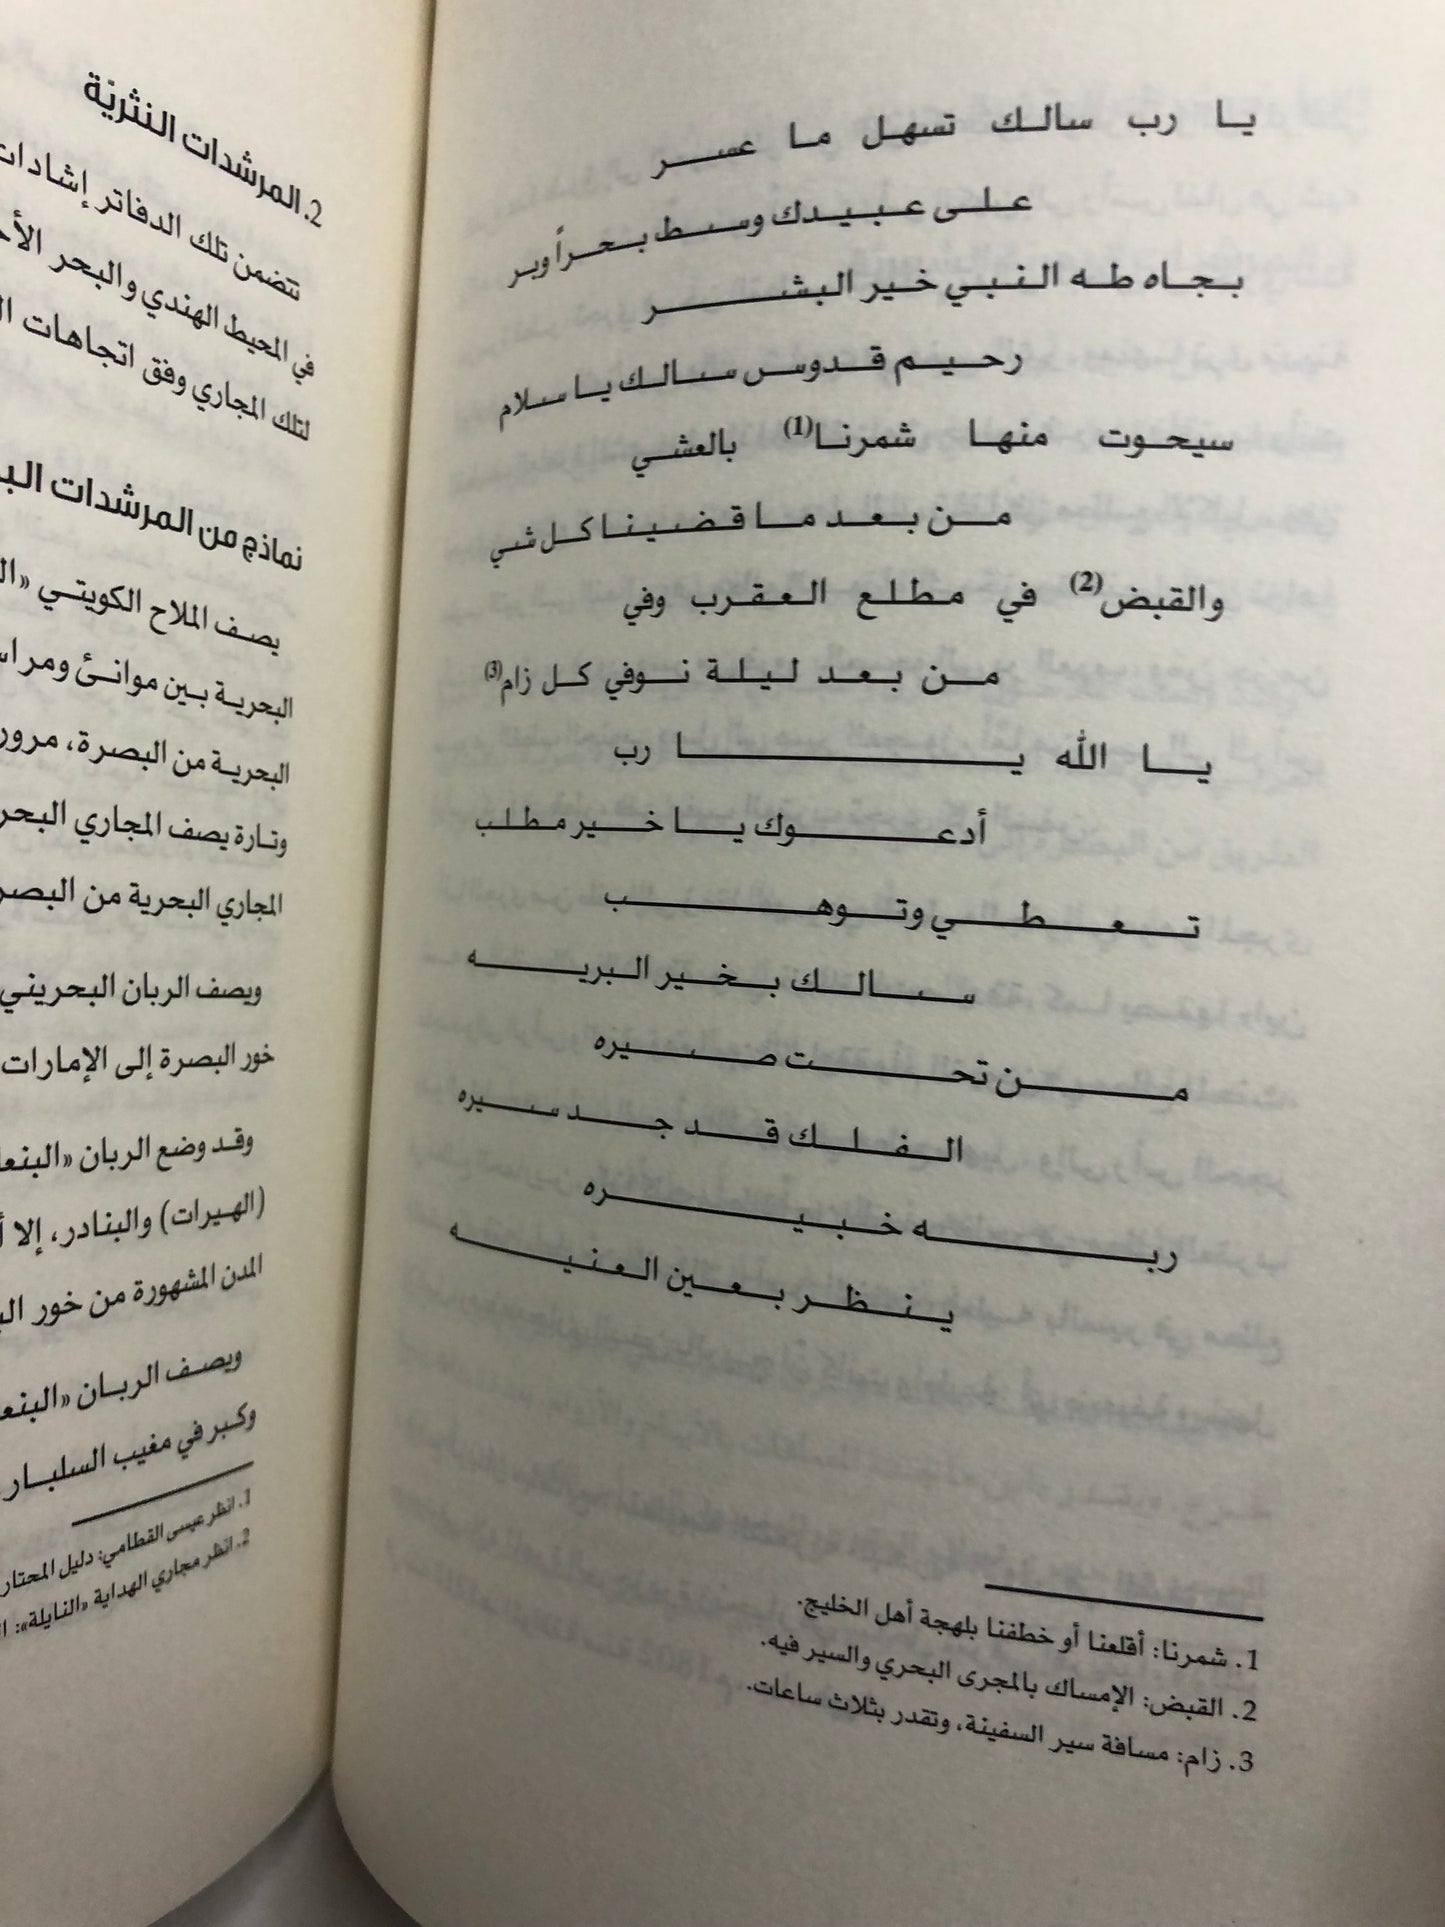 يا رب سالك تسهل ما عسر
على عبيدك وسط بحراً وبر
بجاه طه النبي خير البشر
رحيم قدوس سالك يا سلام
سيحوت منها شمرنا(1) بالعشي
من بعد ما قضينا كل شي
والقبض(2) في مطلع العقرب وفي
من بعد ليلة نوفي كل زام(3)
يا الله يا رب
أدعوك يا خير مطلب
تعطي وتوهب
سالك بخير البريه
من تحت صيره
الفلك قد جد سيره
ربه خبيره
ينظر بعين العنيه
1. شمرنا: أقلعنا أو خطفنا بلهجة أهل الخليج.
2. القبض: الإمساك بالمجرى البحري والسير فيه.
3. زام: مسافة سير السفينة، وتقدر بثلاث ساعات.
2. المرشدات النثريّة
تتضمن تلك الدفاتر إشادات
في المحيط الهندي والبحر
لتلك المجاري وفق اتجاهات
نماذج من المرشدات
يصف الملاح الكويتي
البحرية بين موانئ
البحرية من البصرة، مرور
وتارة يصف المجاري
المجاري البحرية من
ويصف الربان البحريني
خور البصرة إلى الإمارات
وقد وضع الربان
(الهيرات) والبنادر، إلا
المدن المشهورة من خور
ويصف الربان
وكبر في مغيب السلبار
1. انظر عيسى القطامي: دليل المحتار
2. انظر مجاري الهداية «النايلة»: